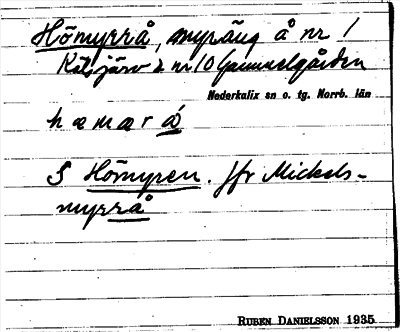 Hömyrrå, myräng å nr 1
Kälsjärv 2 nr 10 Gammelgården
Nederkalix sn o. tg. Norrb. län
hæmærå
S Hömyren. Jfr Mickels-
myrrå
RUBEN DANIELSSON 1935